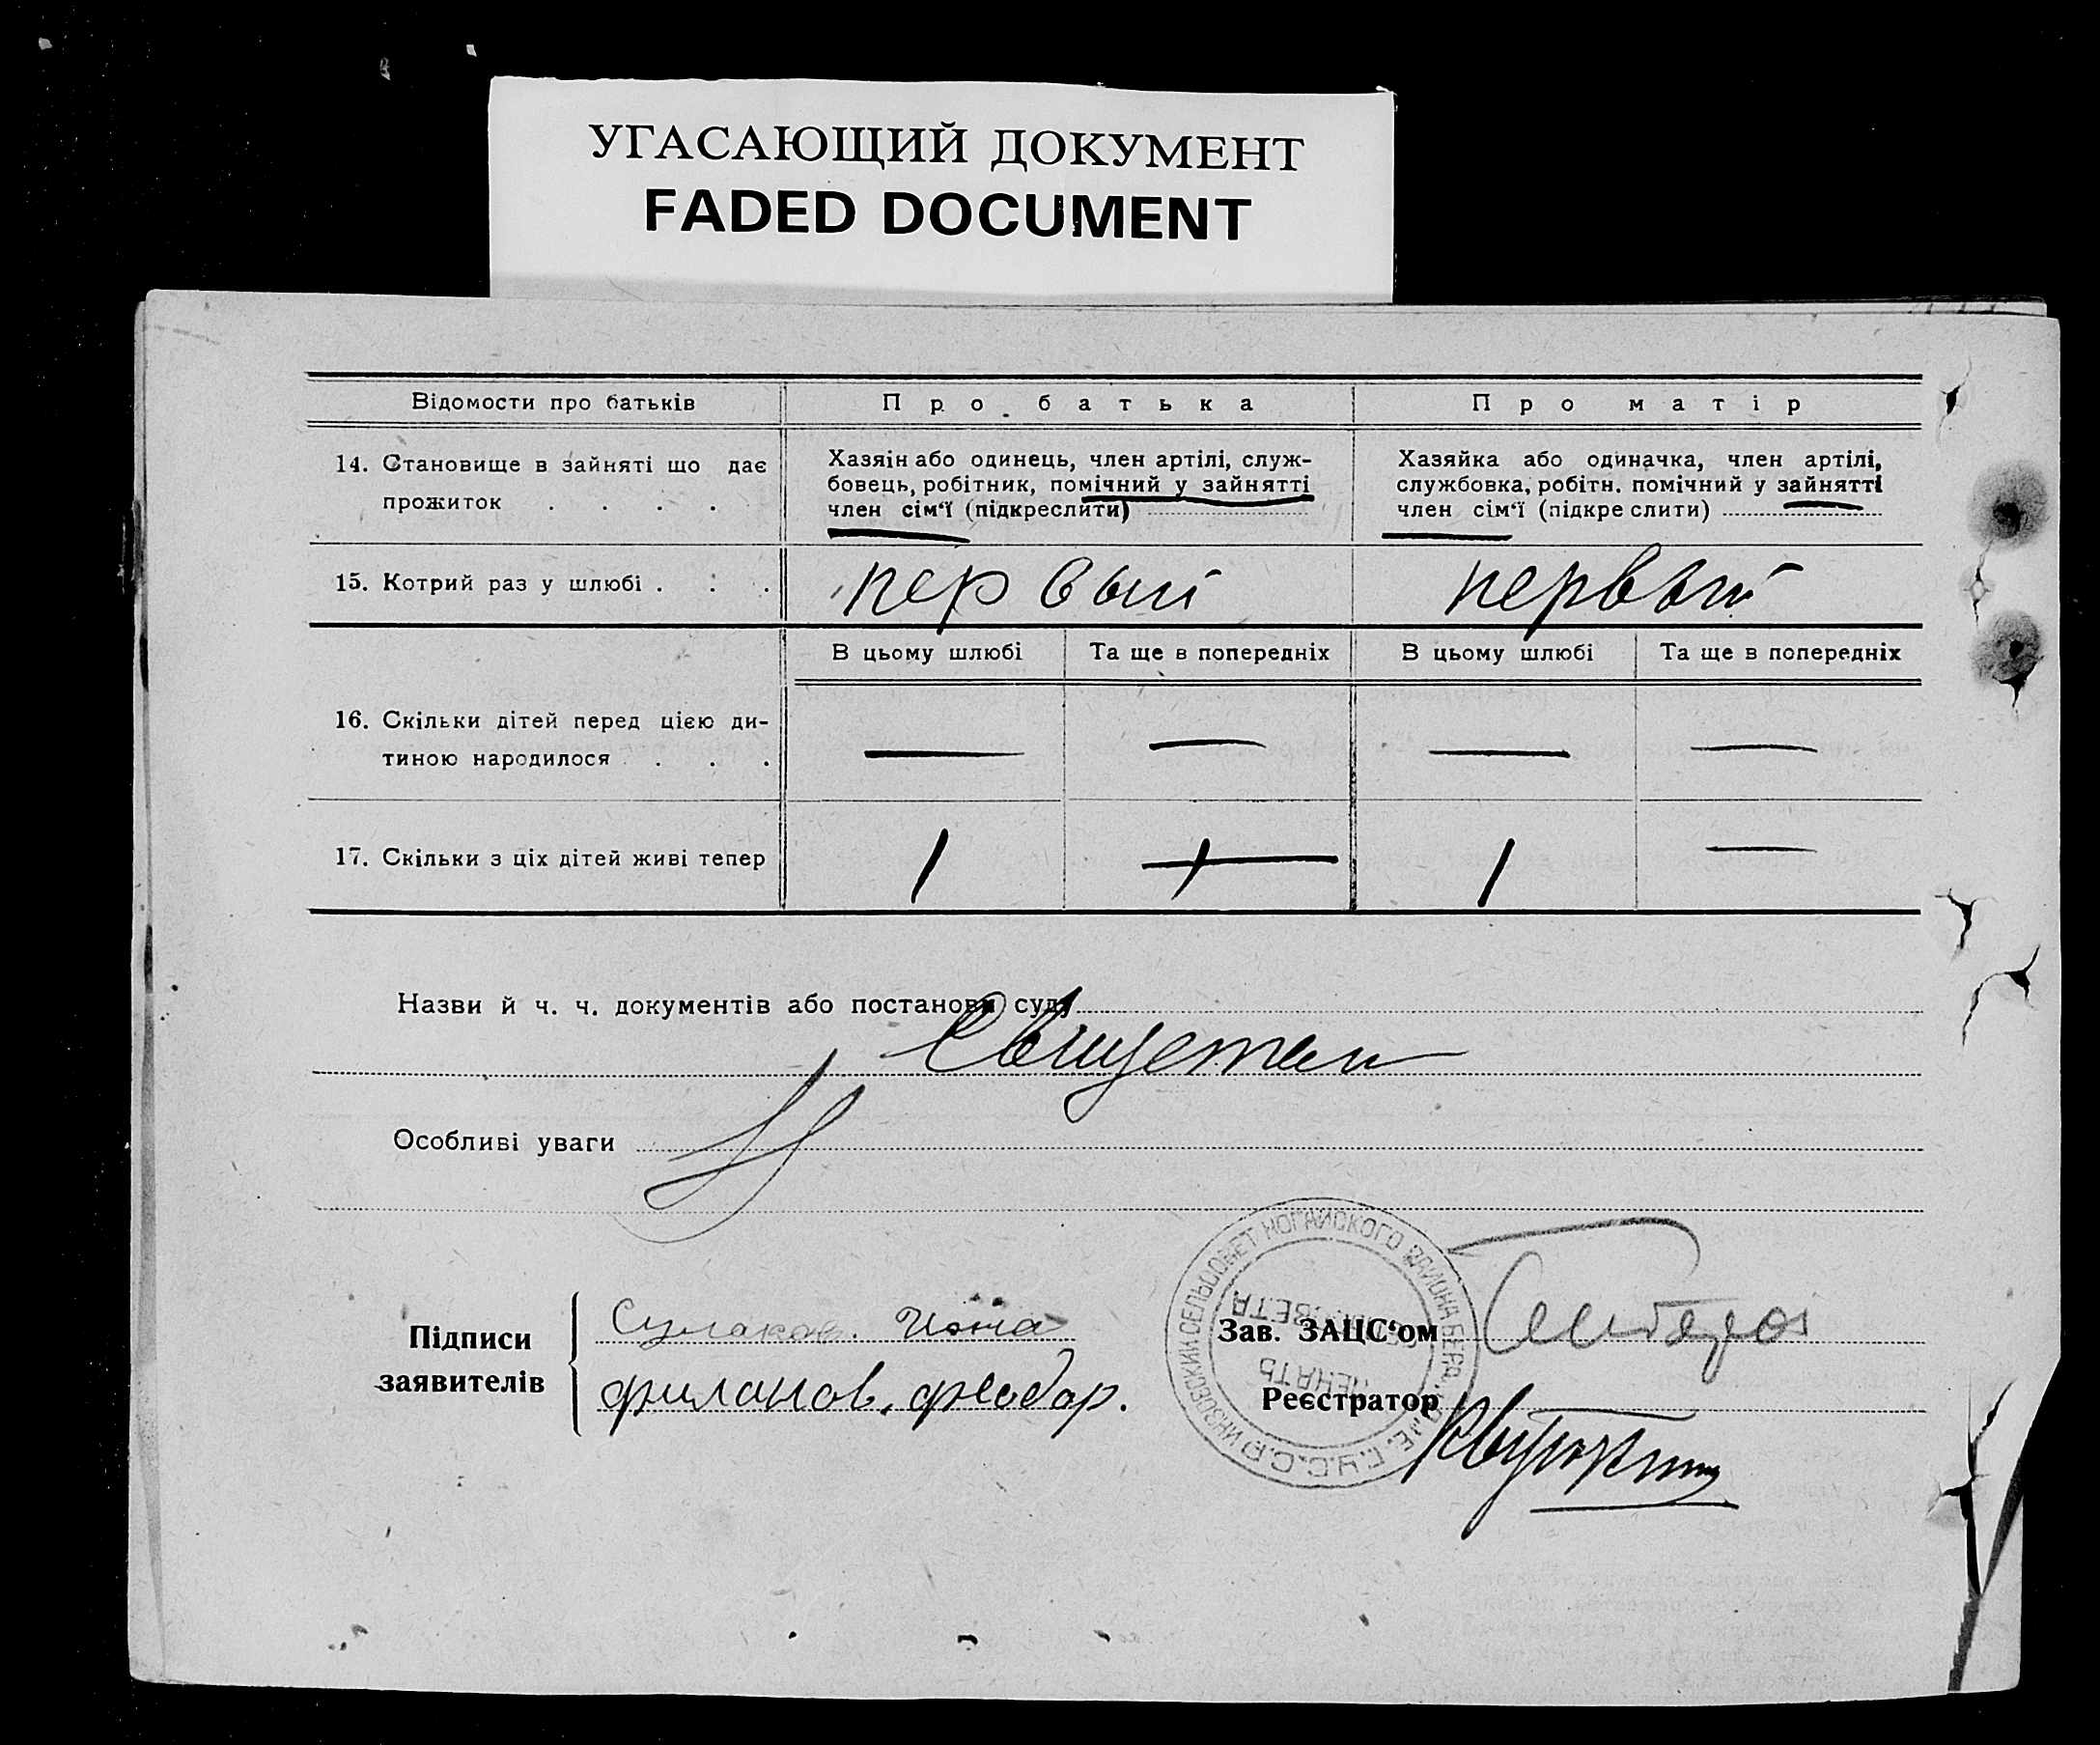 УГАСАЮЩИЙ ДОКУМЕНТ
FADED DOCUMENT
Відомости про батьків
Про батька
Про матір
14. Становище в зайняті що дає
прожиток . . . .
Хазяін або одинець, член артілі, служ-
бовець, робітник, помічний у зайнятті
член сім'ї (підкреслити)
Хазяйка або одиначка, член артілі,
службовка, робітн. помічний у зайнятті
член сім'ї (підкре слити)
15. Котрий раз у шлюбі . . .
первый
первый
В цьому шлюбі
Та ще в попередніх
В цьому шлюбі
Та ще в попередніх
16. Скільки дітей перед цією ди-
тиною народилося . . .
— — — —
17. Скільки з ціх дітей живі тепер
1
1 —
Назви й ч. ч. документів або постанови суду
Особливі уваги
Підписи
заявителів
Иона
филанов. феодор.
Зав. ЗАЦС'ом
Реєстратор
СЕЛЬСОВЕТ НОГАЙСКОГО РАЙОНА У.С.С.Р.